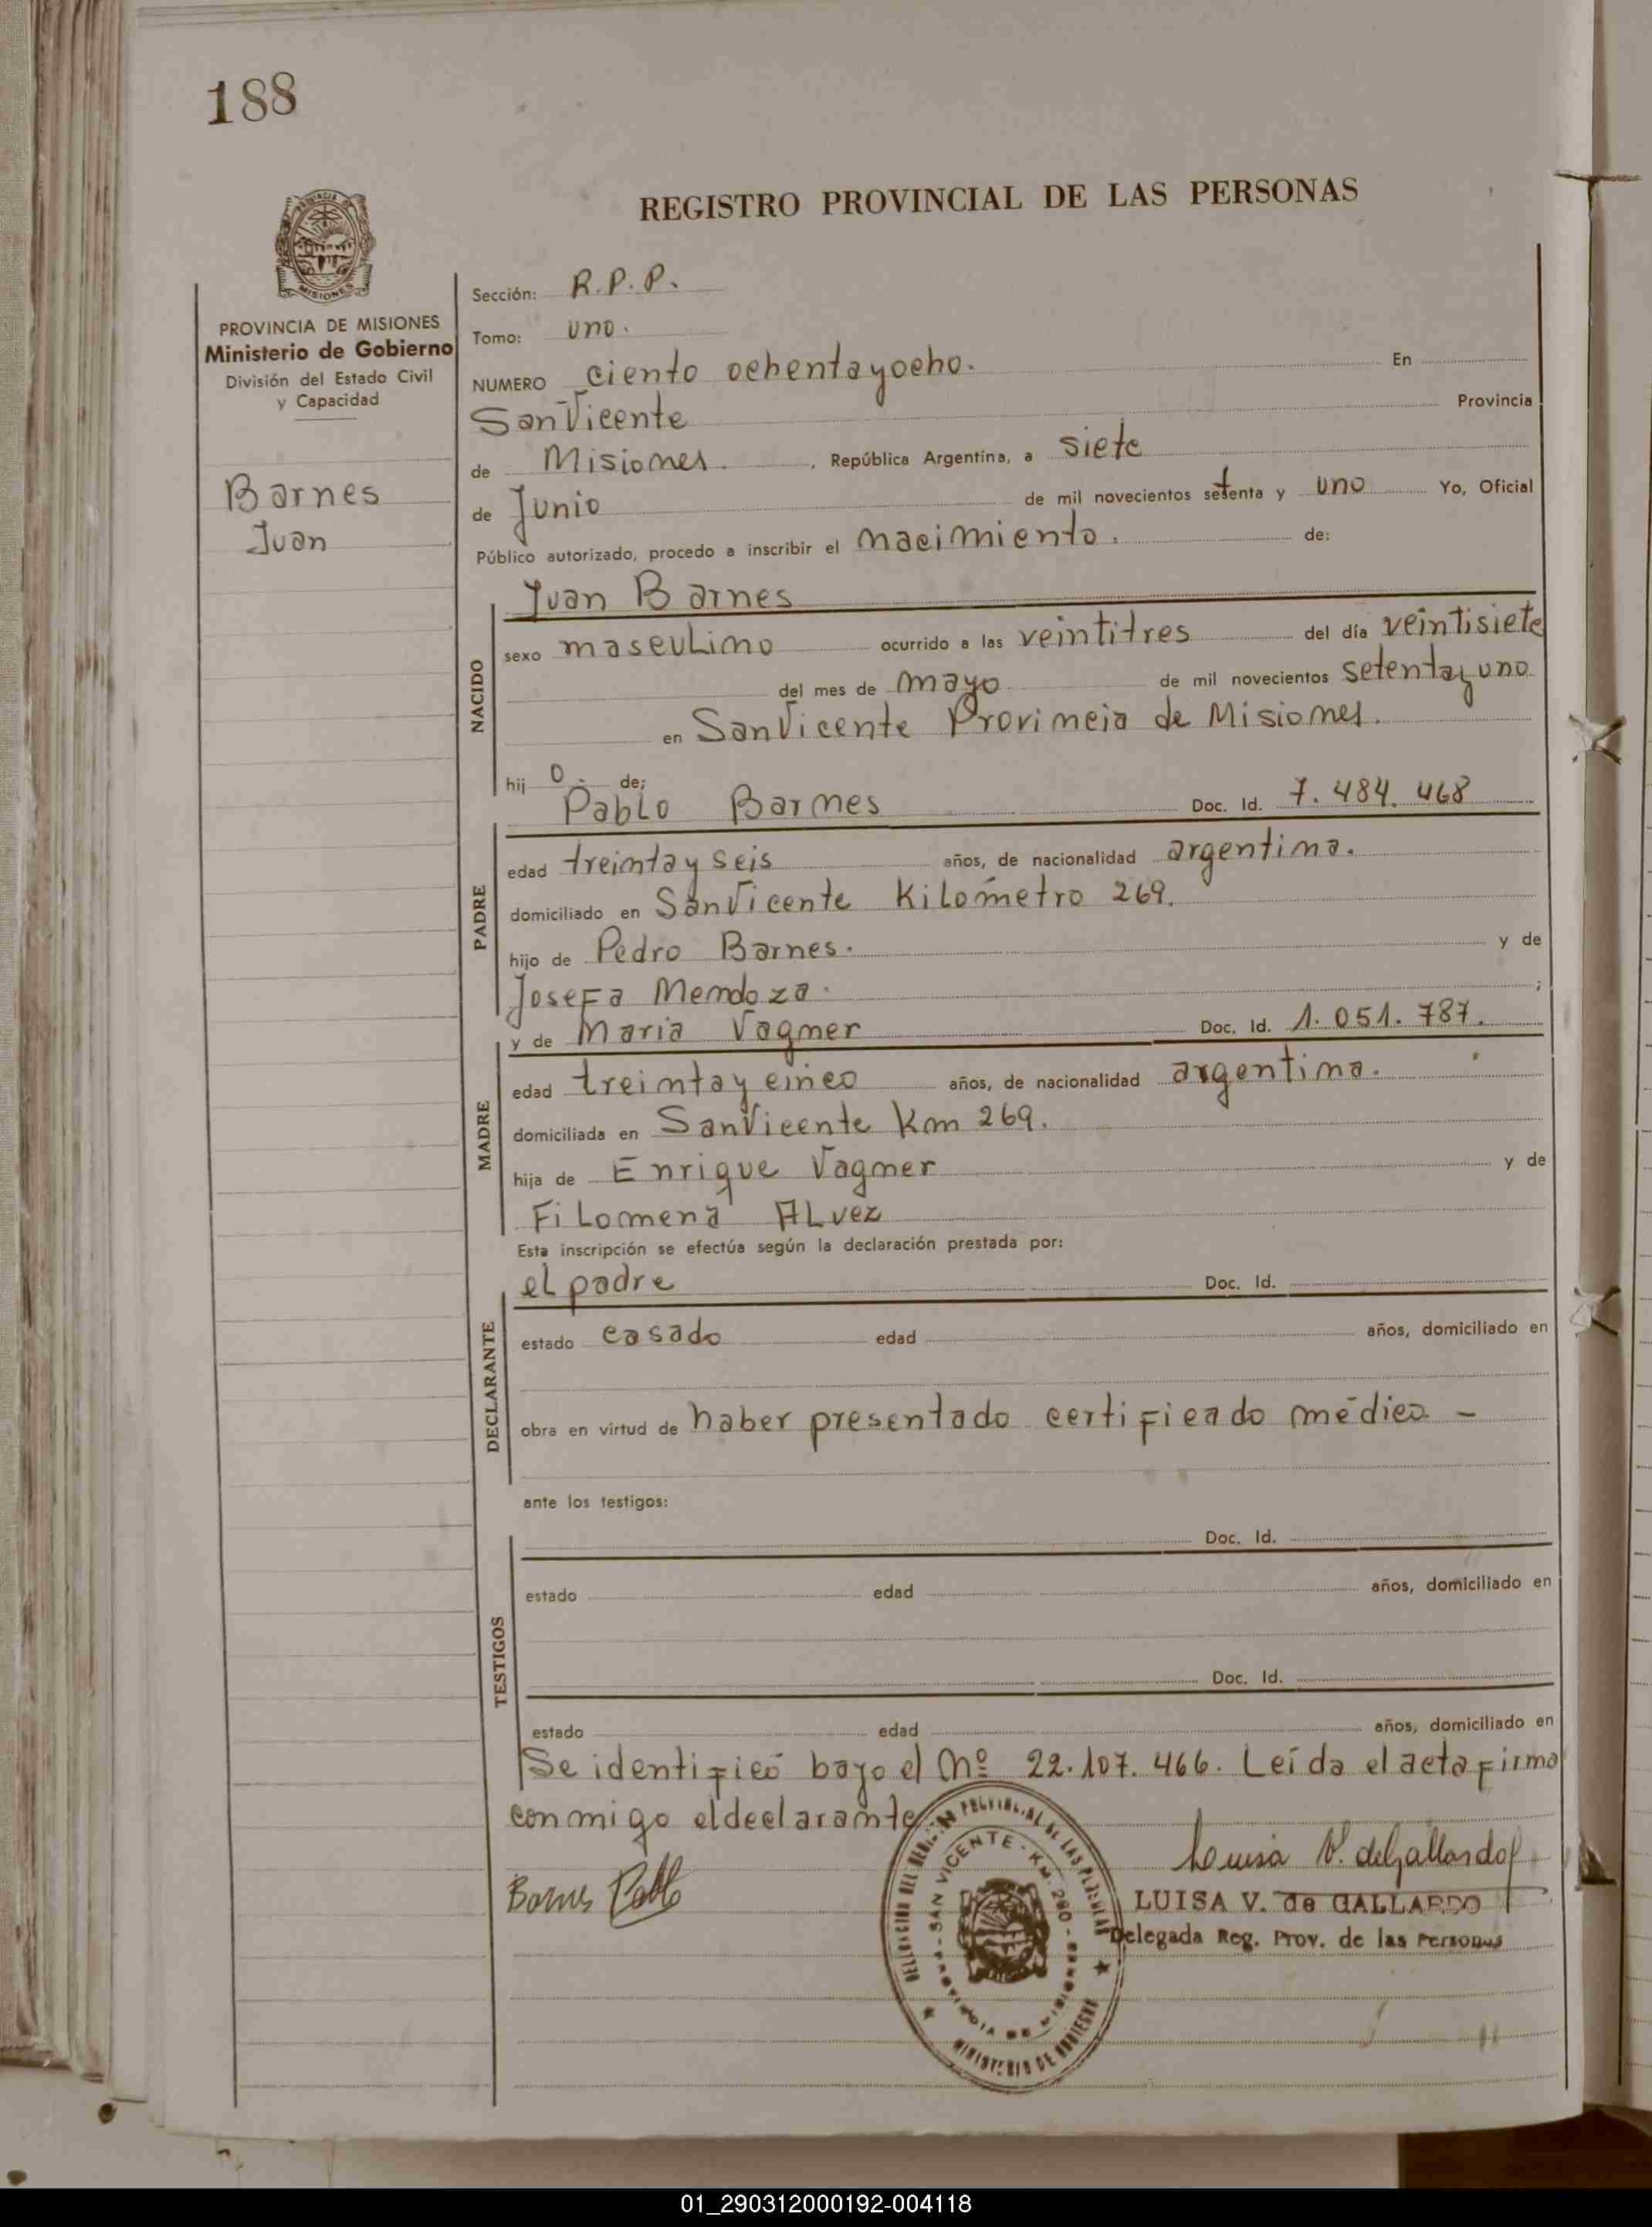 188
REGISTRO PROVINCIAL DE LAS PERSONAS
PROVINCIA DE MISIONES
Ministerio de Gobierno
División del Estado Civil
y Capacidad
Barnes
Juan
Sección: R.P.P.
Tomo: uno.
NUMERO ciento ochentayocho. En
San Vicente Provincia
de Misiones. , República Argentina, a siete
de Junio de mil novecientos setenta y uno Yo, Oficial
Público autorizado, procedo a inscribir el nacimiento. de:
Juan Barnes
NACIDO
sexo masculino ocurrido a las veintitres del día veintisiete
del mes de mayo de mil novecientos setentayuno
en San Vicente Provincia de Misiones.
hij o. de;
Pablo Barnes Doc. Id. 7.484.468
PADRE
edad treintayseis años, de nacionalidad argentina.
domiciliado en San Vicente Kilómetro 269.
hijo de Pedro Barnes. y de
Josefa Mendoza. ;
y de Maria Vagner Doc. Id. 1.051.787.
MADRE
edad treintaycinco años, de nacionalidad argentina.
domiciliada en San Vicente Km 269.
hija de Enrique Vagner y de
Filomena Alvez
Esta inscripción se efectúa según la declaración prestada por:
el padre Doc. Id.
DECLARANTE
estado casado edad años, domiciliado en
obra en virtud de haber presentado certificado médico -
ante los testigos:
Doc. Id.
TESTIGOS
estado edad años, domiciliado en
Doc. Id.
estado edad años, domiciliado en
Se identificó bajo el Nº 22.107.466. Leída el acta firma
conmigo el declarante
Barnes Pablo
Luisa V. de Gallardo
LUISA V. de GALLARDO
Delegada Reg. Prov. de las Personas
DELEGACION DEL REGISTRO PROVINCIAL DE LAS PERSONAS
SAN VICENTE - KM. 280 -
PROVINCIA DE MISIONES
MINISTERIO DE GOBIERNO
01_290312000192-004118